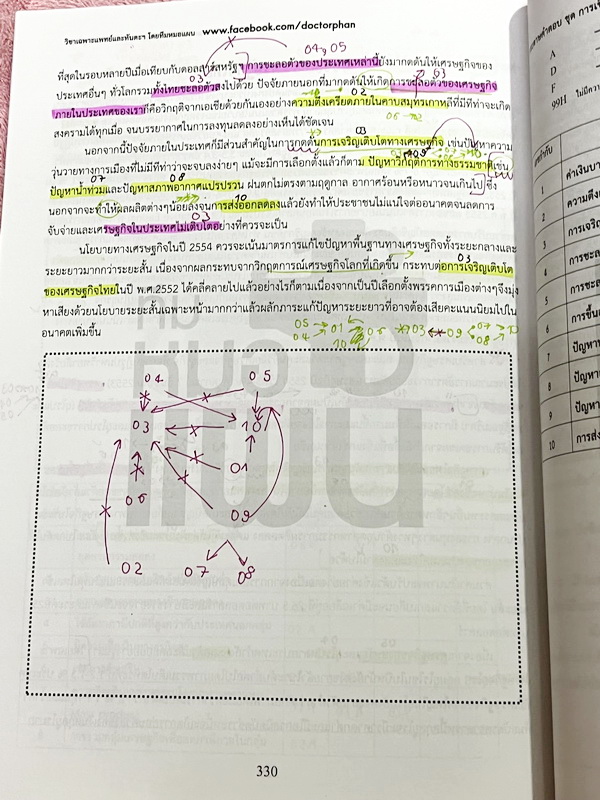 วิชาเฉพาะแพทย์และทันตะฯ โดยทีมหมอแผน www.facebook.com/doctorphan
04, 05
ที่สุดในรอบหลายปีเมื่อเทียบกับดอลลาร์สหรัฐฯ การชะลอตัวของประเทศเหล่านี้ยังมากดดันให้เศรษฐกิจของ
ประเทศอื่นๆ ทั่วโลกรวมทั้งไทยชะลอตัวลงไปด้วย ปัจจัยภายนอกที่มากดดันให้เกิดการชะลอตัวของเศรษฐกิจ
ภายในประเทศของเราก็คือวิกฤติจากเอเชียด้วยกันเองอย่างความตึงเครียดภายในคาบสมุทรเกาหลีที่มีทีท่าจะเกิด
สงครามได้ทุกเมื่อ จนบรรยากาศในการลงทุนลดลงอย่างเห็นได้ชัดเจน
นอกจากนี้ปัจจัยภายในประเทศก็มีส่วนสำคัญในการกดดันการเจริญเติบโตทางเศรษฐกิจ เช่นปัญหาความ
วุ่นวายทางการเมืองที่ไม่มีทีท่าว่าจะจบลงง่ายๆ แม้จะมีการเลือกตั้งแล้วก็ตาม ปัญหาวิกฤติการทางธรรมชาติเช่น
ปัญหาน้ำท่วมและปัญหาสภาพอากาศแปรปรวน ฝนตกไม่ตรงตามฤดูกาล อากาศร้อนหรือหนาวจนเกินไป ซึ่ง
นอกจากจะทำให้ผลผลิตต่างๆน้อยลงจนการส่งออกลดลงแล้วยังทำให้ประชาชนไม่แน่ใจต่ออนาคตจนลดการ
จับจ่ายและเศรษฐกิจในประเทศไม่เติบโตอย่างที่ควรจะเป็น
นโยบายทางเศรษฐกิจในปี 2554 ควรจะเน้นมาตรการแก้ไขปัญหาพื้นฐานทางเศรษฐกิจทั้งระยะกลางและ
ระยะยาวมากกว่าระยะสั้น เนื่องจากผลกระทบจากวิกฤตการณ์เศรษฐกิจโลกที่เกิดขึ้น กระทบต่อการเจริญเติบโต
ของเศรษฐกิจไทยในปี พ.ศ.2552 ได้คลี่คลายไปแล้วอย่างไรก็ตามเนื่องจากเป็นปีเลือกตั้งพรรคการเมืองต่างๆจึงมุ่ง
หาเสียงด้วยนโยบายระยะสั้นเฉพาะหน้ามากกว่าแล้วผลักภาระแก้ปัญหาระยะยาวที่อาจต้องเสียคะแนนนิยมไปใน
อนาคตเพิ่มขึ้น
04 05
03 10
01
06
09
02 07 08
330
A
D
F
99H
1 ค่าเงินบา
2 ความตึง
3 การเจริญ
4 การชะล
5 การชะล
6 การขึ้น
7 ปัญหา
8 ปัญหา
9 ปัญหา
10 การส่ง